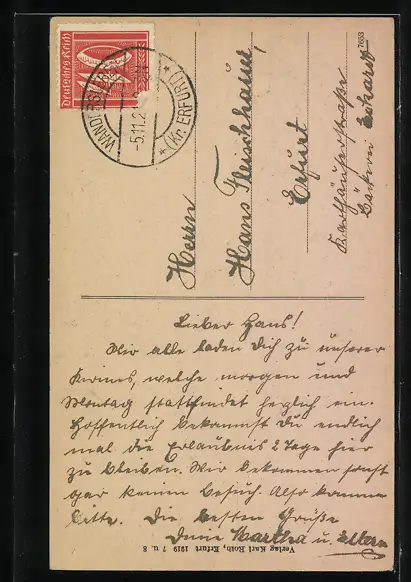 Deutsches Reich
WANDERSLEBEN
-5.11.2
* (Kr. ERFURT) *
7653
Herrn
Hans Fleischhauer,
Erfurt
Karthäuserstraße
Bäckerei Eckardt
Lieber Hans!
Wir alle laden Dich zu unserer
Kirmes, welche morgen und
Montag stattfindet herzlich ein.
Hoffentlich bekommst Du endlich
mal die Erlaubnis 2 Tage hier
zu bleiben. Wir bekommen sonst
gar keinen Besuch. Also komme
bitte. Die besten Grüße
Deine Martha u. Eltern
Verlag Karl Roth, Erfurt 1919 7 u. 8